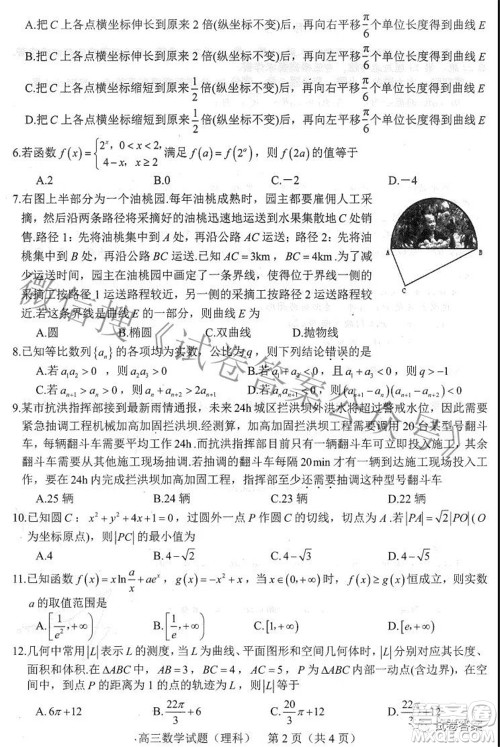 A.把 C 上各点横坐标伸长到原来 2 倍(纵坐标不变)后，再向右平移 π/6 个单位长度得到曲线 E
B.把 C 上各点横坐标伸长到原来 2 倍(纵坐标不变)后，再向左平移 π/6 个单位长度得到曲线 E
C.把 C 上各点横坐标缩短到原来 2 倍(纵坐标不变)后，再向右平移 π/6 个单位长度得到曲线 E
D.把 C 上各点横坐标缩短到原来 2 倍(纵坐标不变)后，再向左平移 π/6 个单位长度得到曲线 E
6.若函数 f(x)={2ˣ, 0<x<2, 4−x, x≥2 满足 f(a)=f(2ᵃ)，则 f(2a) 的值等于
A.2 B.0 C.−2 D.−4
7.右图上半部分为一个油桃园.每年油桃成熟时，园主都要雇佣人工采
摘，然后沿两条路径将采摘好的油桃迅速地运送到水果集散地 C 处销
售.路径 1：先将油桃集中到 A 处，再沿公路 AC 运送；路径 2：先将
油桃集中到 B 处，再沿公路 BC 运送.已知 AC=3km，BC=4km.为了减
少运送时间，园主在油桃园中画定了一条界线，使得位于界线一侧的
采摘工按路径 1 运送路程较近，另一侧的采摘工按路径 2 运送路程较
近.若这条界线是曲线 E 的一部分，则曲线 E 为
A B C
A.圆 B.椭圆 C.双曲线 D.抛物线
8.已知等比数列{aₙ}的各项均为实数，公比为 q，则下列结论错误的是
A.若 a₁a₂>0，则 a₂a₃>0 B.若 a₁+a₂<0，且
C.若 aₙ₊₁>aₙ>0，则 aₙ+aₙ₊₂>2aₙ₊₁ D.若 aₙaₙ₊₁<0，则
9.某市抗洪指挥部接到最新雨情通报，未来 24h 城区拦洪坝外洪水将超过警戒水位，因此需要
紧急抽调工程机械加高加固拦洪坝.经测算，加高加固拦洪坝工程需要调用 20 台某型号翻斗
车，每辆翻斗车需要平均工作 24h.而抗洪指挥部目前只有一辆翻斗车可立即投入施工，其余
翻斗车需要从其他施工现场抽调.若抽调的翻斗车每隔 20min 才有一辆到达施工现场投入工
作，要在 24h 内完成拦洪坝加高加固工程，指挥部至少还需要抽调这种型号翻斗车
A.25 辆 B.24 辆 C.23 辆 D.22 辆
10.已知圆 C：x²+y²+4x+1=0，过圆外一点 P 作圆 C 的切线，切点为 A.若|PA|=√2|PO|(O
为坐标原点)，则|PC|的最小值为
A.4 B.4−√2 C.4−√3 D.4−√5
11.已知函数 f(x)=xln a/x+aeˣ，g(x)=−x²+x，当 x∈(0,+∞)时，f(x)≥g(x)恒成立，则实数
a 的取值范围是
A.[1/e²,+∞) B.[1/e,+∞) C.[1,+∞) D.[e,+∞)
12.几何中常用|L|表示 L 的测度，当 L 为曲线、平面图形和空间几何体时，|L|分别对应其长度、
面积和体积.在ΔABC 中，AB=3，BC=4，AC=5，P 为ΔABC 内部一动点(含边界)，在空
间中，到点 P 的距离为 1 的点的轨迹为 L，则|L|等于
A.6π+12 B.22π/3+6 C.20π/3+6 D.22π/3+12
高三数学试题（理科） 第 2 页（共 4 页）
微信搜《试卷答案公众号》
试卷答案